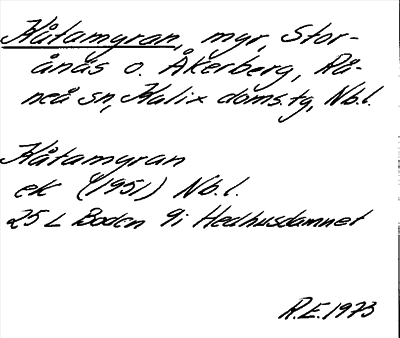 Kåtamyran, mgr, Stor-
ånäs o. Åkerberg, Rå-
neå sn, Kalix doms.tg, Nb.l.
Kåtamyran
ek (1951) Nb.l.
25 L Boden 9i Hedhusdamnet
R.E. 1973